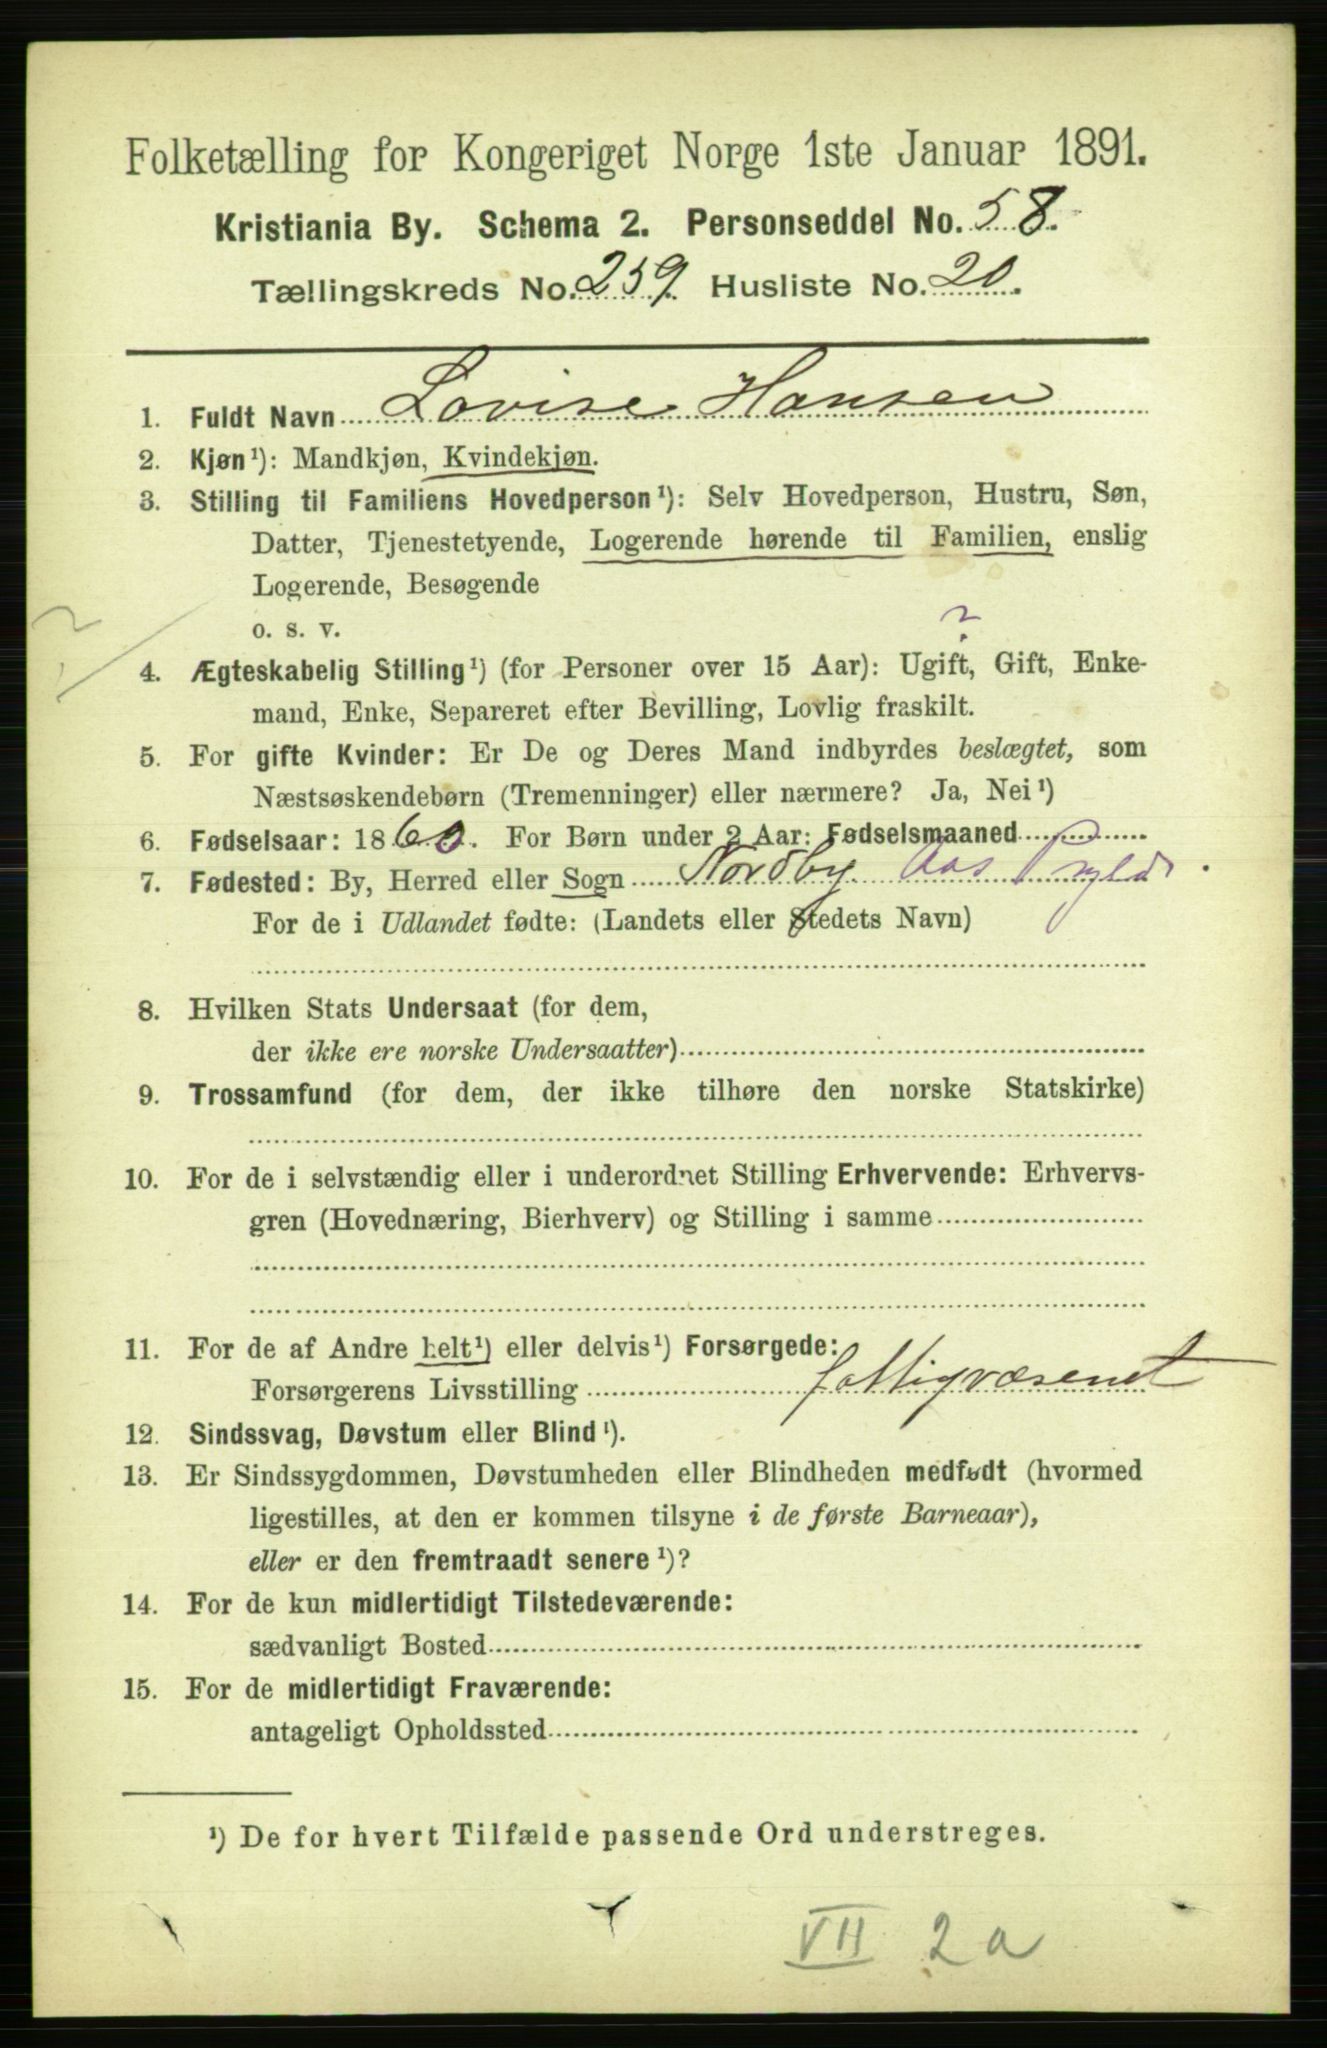 Folketælling for Kongeriget Norge 1ste Januar 1891.
Kristiania By. Schema 2. Personseddel No. 58.
Tællingskreds No. 259. Husliste No. 20.
1. Fuldt Navn Lovise Hansen
2. Kjøn¹): Mandkjøn, Kvindekjøn.
3. Stilling til Familiens Hovedperson¹): Selv Hovedperson, Hustru, Søn,
Datter, Tjenestetyende, Logerende hørende til Familien, enslig
Logerende, Besøgende
o. s. v.
?
4. Ægteskabelig Stilling¹) (for Personer over 15 Aar): Ugift, Gift, Enke-
mand, Enke, Separeret efter Bevilling, Lovlig fraskilt.
5. For gifte Kvinder: Er De og Deres Mand indbyrdes beslægtet, som
Næstsøskendebørn (Tremenninger) eller nærmere? Ja, Nei¹)
6. Fødselsaar: 1860. For Børn under 2 Aar: Fødselsmaaned
7. Fødested: By, Herred eller Sogn Nordby Aas
For de i Udlandet fødte: (Landets eller Stedets Navn)
8. Hvilken Stats Undersaat (for dem,
der ikke ere norske Undersaatter)
9. Trossamfund (for dem, der ikke tilhøre den norske Statskirke)
10. For de i selvstændig eller i underordnet Stilling Erhvervende: Erhvervs-
gren (Hovednæring, Bierhverv) og Stilling i samme
11. For de af Andre helt¹) eller delvis¹) Forsørgede:
Forsørgerens Livsstilling fattigvæsenet
12. Sindssvag, Døvstum eller Blind¹).
13. Er Sindssygdommen, Døvstumheden eller Blindheden medfødt (hvormed
ligestilles, at den er kommen tilsyne i de første Barneaar),
eller er den fremtraadt senere¹)?
14. For de kun midlertidigt Tilstedeværende:
sædvanligt Bosted
15. For de midlertidigt Fraværende:
antageligt Opholdssted
¹) De for hvert Tilfælde passende Ord understreges.
VII 2a